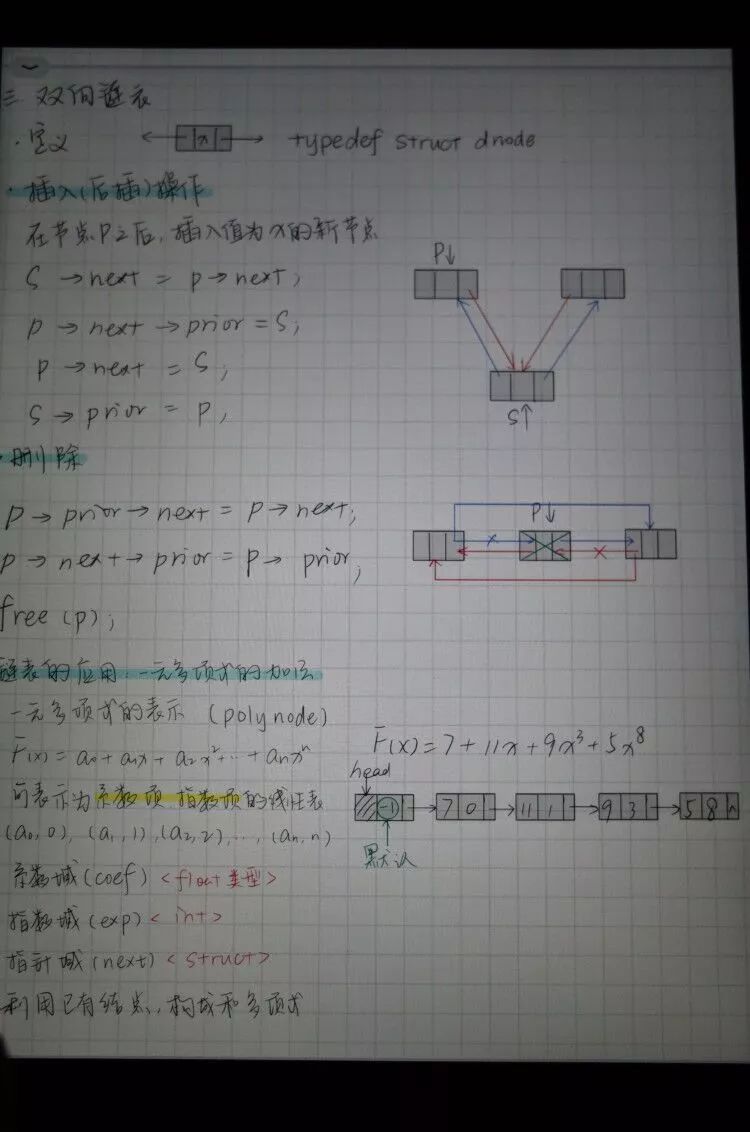 三 双向链表
· 定义 x typedef struct dnode
· 插入(后插)操作
在节点P之后,插入值为x的新节点
S → next = p → next;
p → next → prior = S;
p → next = S;
S → prior = P,
P↓
S↑
· 删除
p → prior → next = p → next;
p → next → prior = p → prior;
free (p);
P↓
链表的应用:一元多项式的加法
一元多项式的表示 (polynode)
F(x) = a₀ + a₁x + a₂x² + … + aₙxⁿ
可表示为系数项、指数项的线性表
(a₀, 0), (a₁, 1), (a₂, 2), …, (aₙ, n)
系数域(coef) <float 类型>
指数域(exp) < int >
指针域(next) < struct >
利用已有结点,构成和多项式
F(x) = 7 + 11x + 9x³ + 5x⁸
head
-1 7 0 11 1 9 3 5 8 n
默认